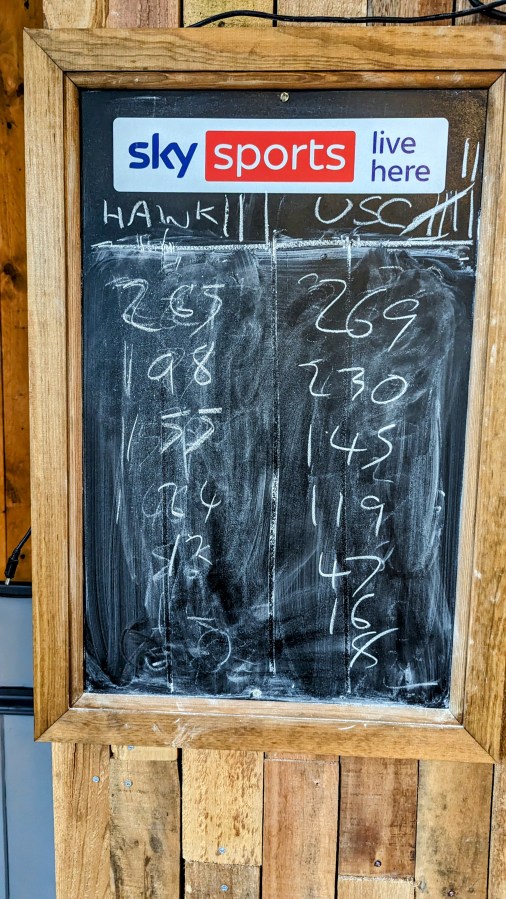 sky sports live
here
HAWK USC
265 269
198 230
155 145
119
47
16
8